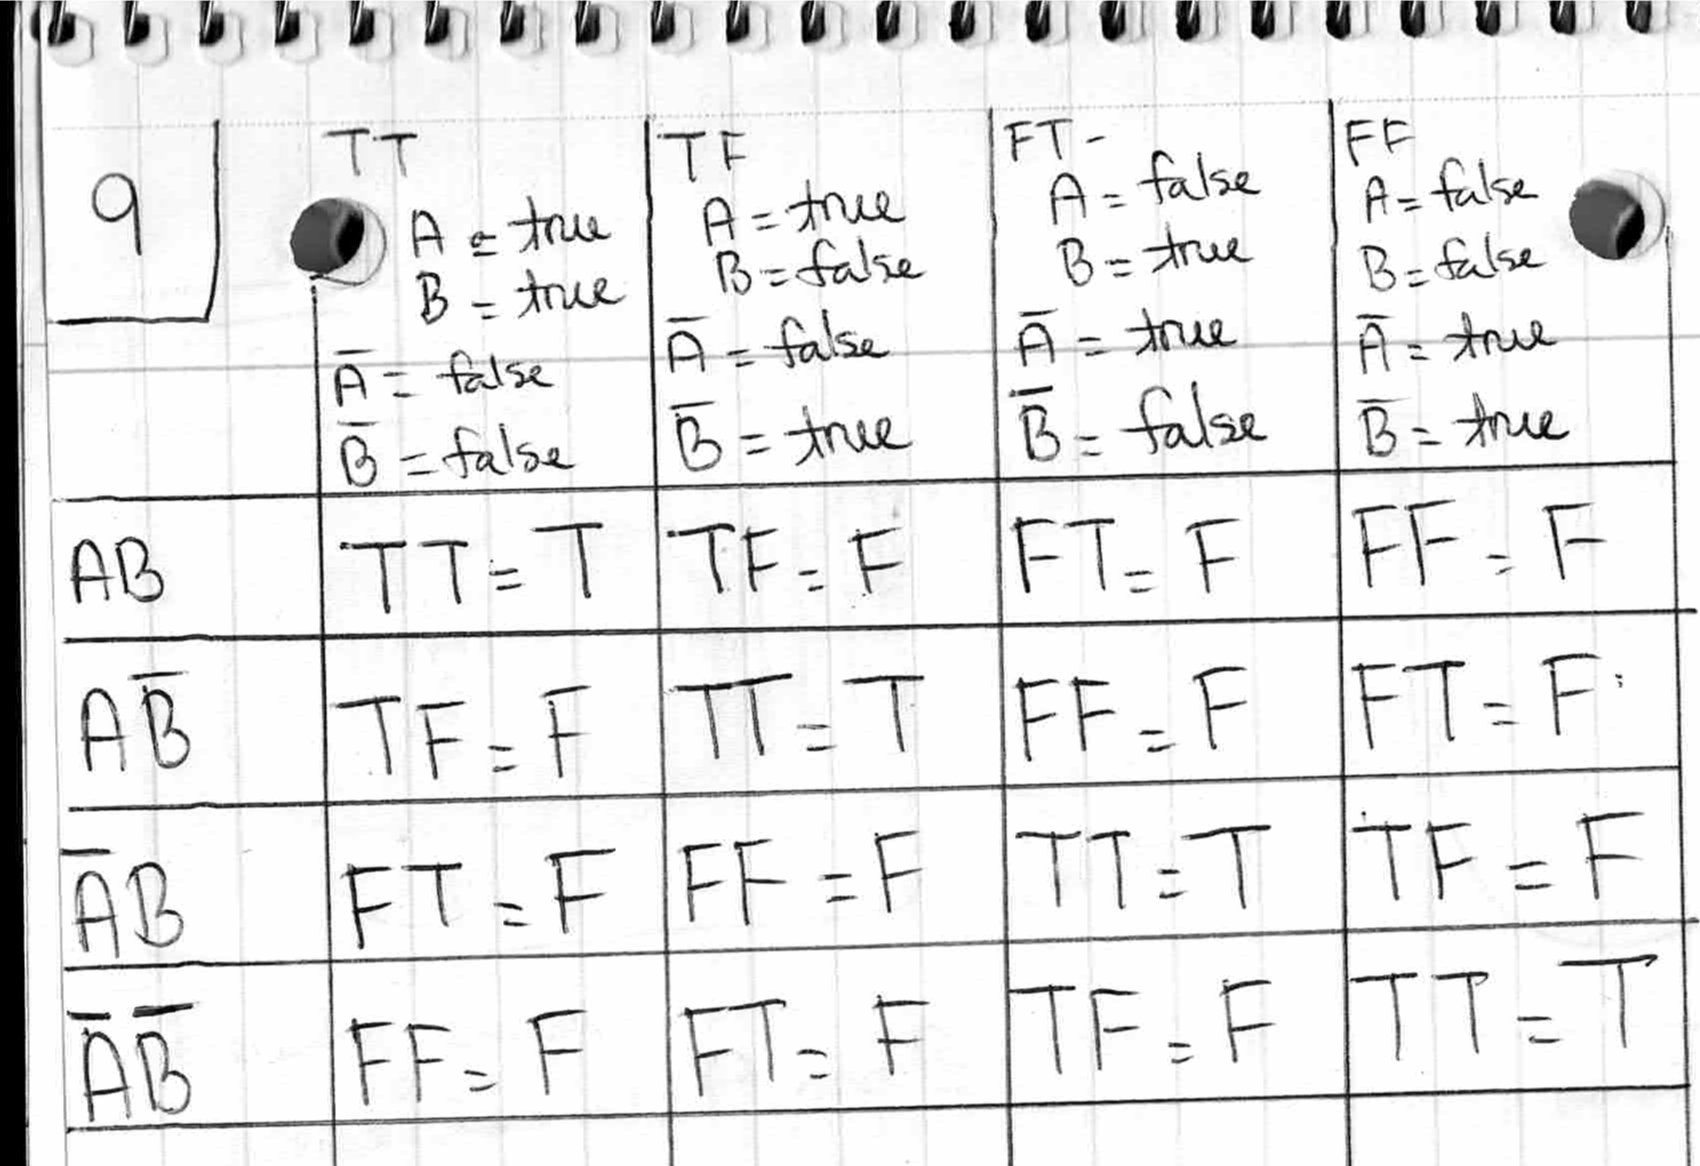 9
TT
A = true
B = true
A̅ = false
B̅ = false
TF
A = true
B = false
A̅ = false
B̅ = true
FT -
A = false
B = true
A̅ = true
B̅ = false
FF
A = false
B = false
A̅ = true
B̅ = true
AB TT = T TF = F FT = F FF = F
AB̅ TF = F TT = T FF = F FT = F
A̅B FT = F FF = F TT = T TF = F
A̅B̅ FF = F FT = F TF = F TT = T